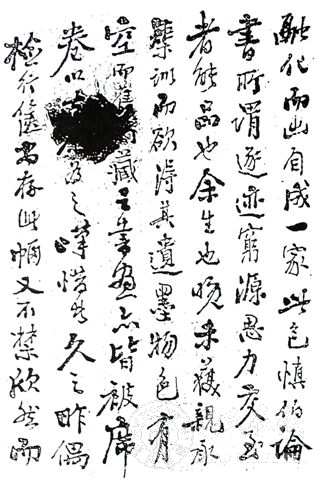 融化而出自成一家此包慎伯論
書所謂逐迹窮源思力交至
者能品也余生也晚未獲親承
榘訓而欲得其遺墨物色有
而舊藏之書畫亦皆被席
卷以為之嘆惜者久之昨偶
檢行篋尚存此幀又不禁欣然而